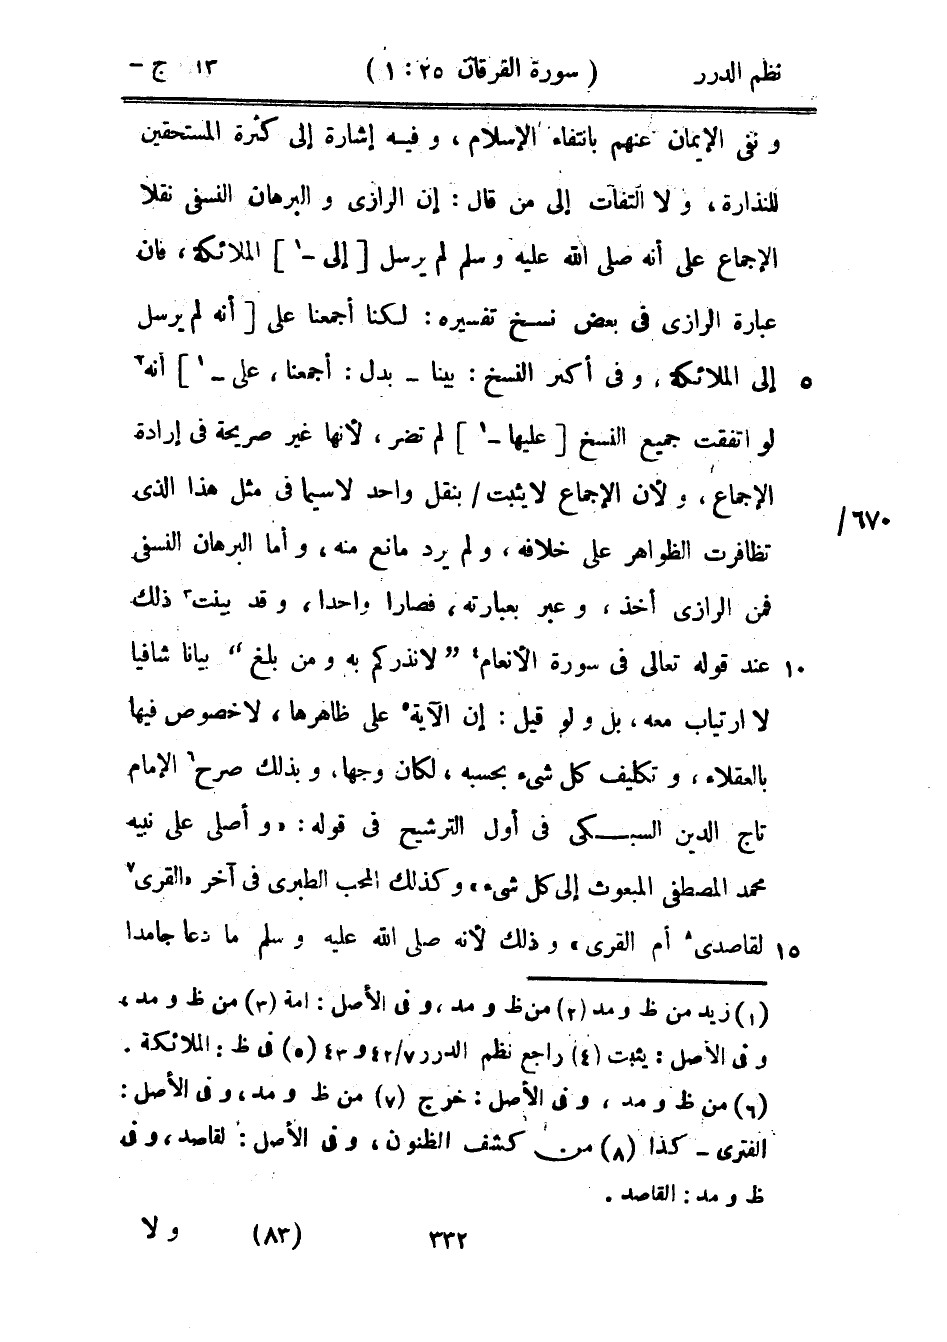 نظم الدرر ( سورة الفرقان ٢٥ : ١ ) ج - ١٣
و نفى الإيمان عنهم بانتفاء الإسلام ، و فيه إشارة إلى كثرة المستحقين
للنذارة ، و لا التفات إلى من قال : إن الرازى و البرهان النسفى نقلا
الإجماع على أنه صلى الله عليه و سلم لم يرسل [ إلى -١ ] الملائكة ، فان
عبارة الرازى فى بعض نسخ تفسيره : لكنا أجمعنا على [ أنه لم يرسل
٥ إلى الملائكة ، و فى أكثر النسخ : بينا - بدل : أجمعنا ، على -١ ] أنه٢
لو اتفقت جميع النسخ [ عليها -١ ] لم تضر ، لأنها غير صريحة فى إرادة
الإجماع ، و لأن الإجماع لا يثبت / بنقل واحد لاسيما فى مثل هذا الذى
/ ٦٧٠
تظافرت الظواهر على خلافه ، و لم يرد مانع منه ، و أما البرهان النسفى
فمن الرازى أخذ ، و عبر بعبارته ، فصارا واحدا ، و قد بينت٣ ذلك
١٠ عند قوله تعالى فى سورة الأنعام٤ " لانذركم به و من بلغ " بيانا شافيا
لا ارتياب معه ، بل و لو قيل : إن الآية٥ على ظاهرها ، لا خصوص فيها
بالعقلاء ، و تكليف كل شىء بحسبه ، لكان وجها ، و بذلك صرح٦ الإمام
تاج الدين السبكى فى أول الترشيح فى قوله : « و أصلى على نبيه
محمد المصطفى المبعوث إلى كل شىء » و كذلك المحب الطبرى فى آخر « القرى٧
١٥ لقاصدى٨ أم القرى » و ذلك لأنه صلى الله عليه و سلم ما دعا جامدا
(١) زيد من ظ و مد (٢) من ظ و مد ، و فى الأصل : امة (٣) من ظ و مد ،
و فى الأصل : يثبت (٤) راجع نظم الدرر ٧/٤٢ و ٤٣ (٥) فى ظ : الملائكة .
(٦) من ظ و مد ، و فى الأصل : خرج (٧) من ظ و مد ، و فى الأصل :
الفترى - كذا (٨) من كشف الظنون ، و فى الأصل : لقاصد ، و فى
ظ و مد : القاصد .
٣٣٢ (٨٣) و لا